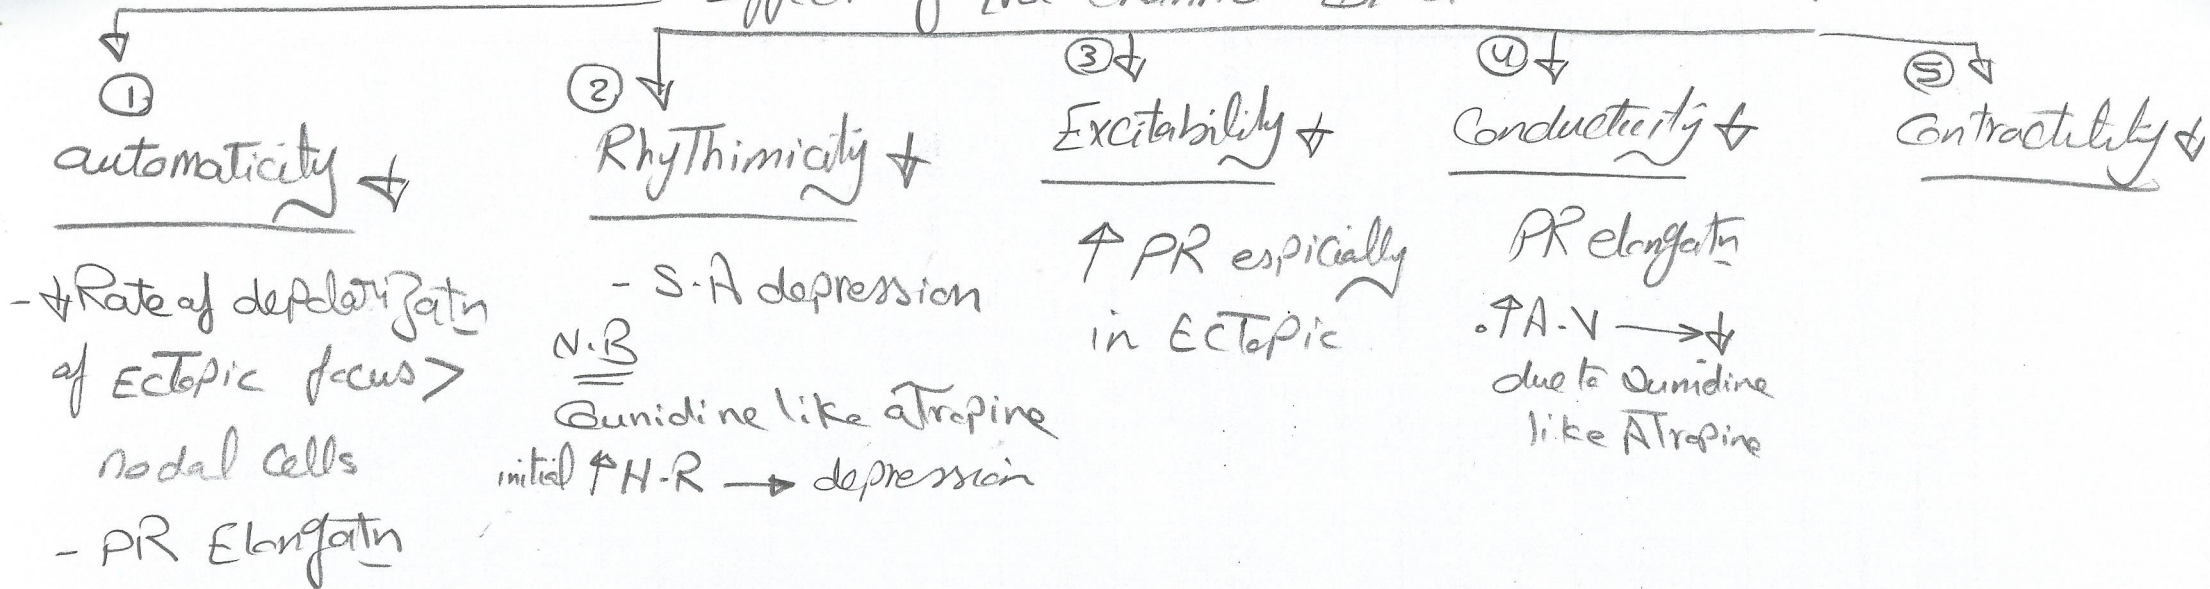 Effect of Na channel
① automaticity ↓
- ↓ Rate of depolarizatn
of Ectopic focus >
nodal cells
- PR Elongatn
② Rhythimicity ↓
- S.A depression
N.B
Qunidine like aTropine
initial ↑ H.R → depression
③ Excitability ↓
↑ PR espicially
in Ectopic
④ Conductivity ↓
PR elongatn
. ↑ A.V → ↓
due to Qunidine
like ATropine
⑤ Contractility ↓